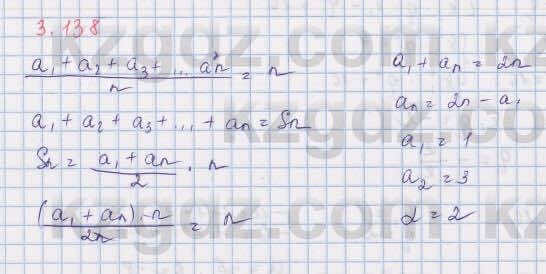 3.138
a₁ + a₂ + a₃ + ... aₙ / n = n
a₁ + a₂ + a₃ + ... + aₙ = Sₙ
Sₙ = a₁ + aₙ / 2 · n
(a₁ + aₙ) · n / 2n = n
a₁ + aₙ = 2n
aₙ = 2n - a₁
a₁ = 1
a₂ = 3
d = 2
kzgaz.com
kzgaz.com
kzgaz.com